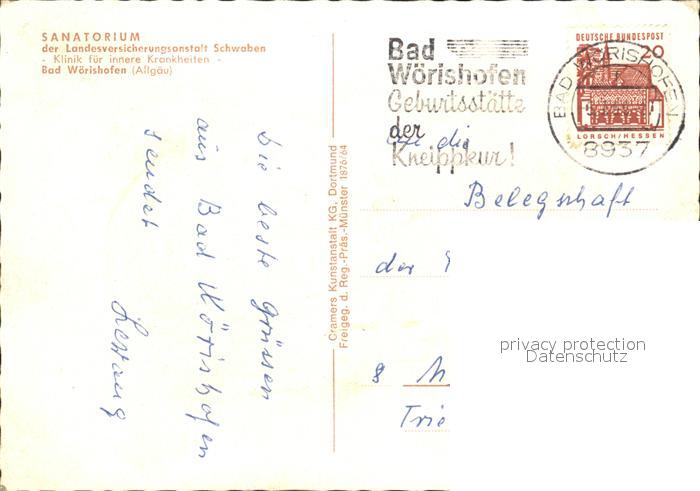 SANATORIUM
der Landesversicherungsanstalt Schwaben
- Klinik für innere Krankheiten -
Bad Wörishofen (Allgäu)
Die beste Grüssen
aus Bad Wörishofen
sendet
Cramers Kunstanstalt KG. Dortmund
Freigeg. d. Reg.-Präs.-Münster 1876/64
Bad
Wörishofen
Geburtsstätte
der
Kneippkur!
DEUTSCHE BUNDESPOST
20
LORSCH/HESSEN
BAD WÖRISHOFEN
8937
An die
Belegschaft
der
8 M
Trie
privacy protection
Datenschutz